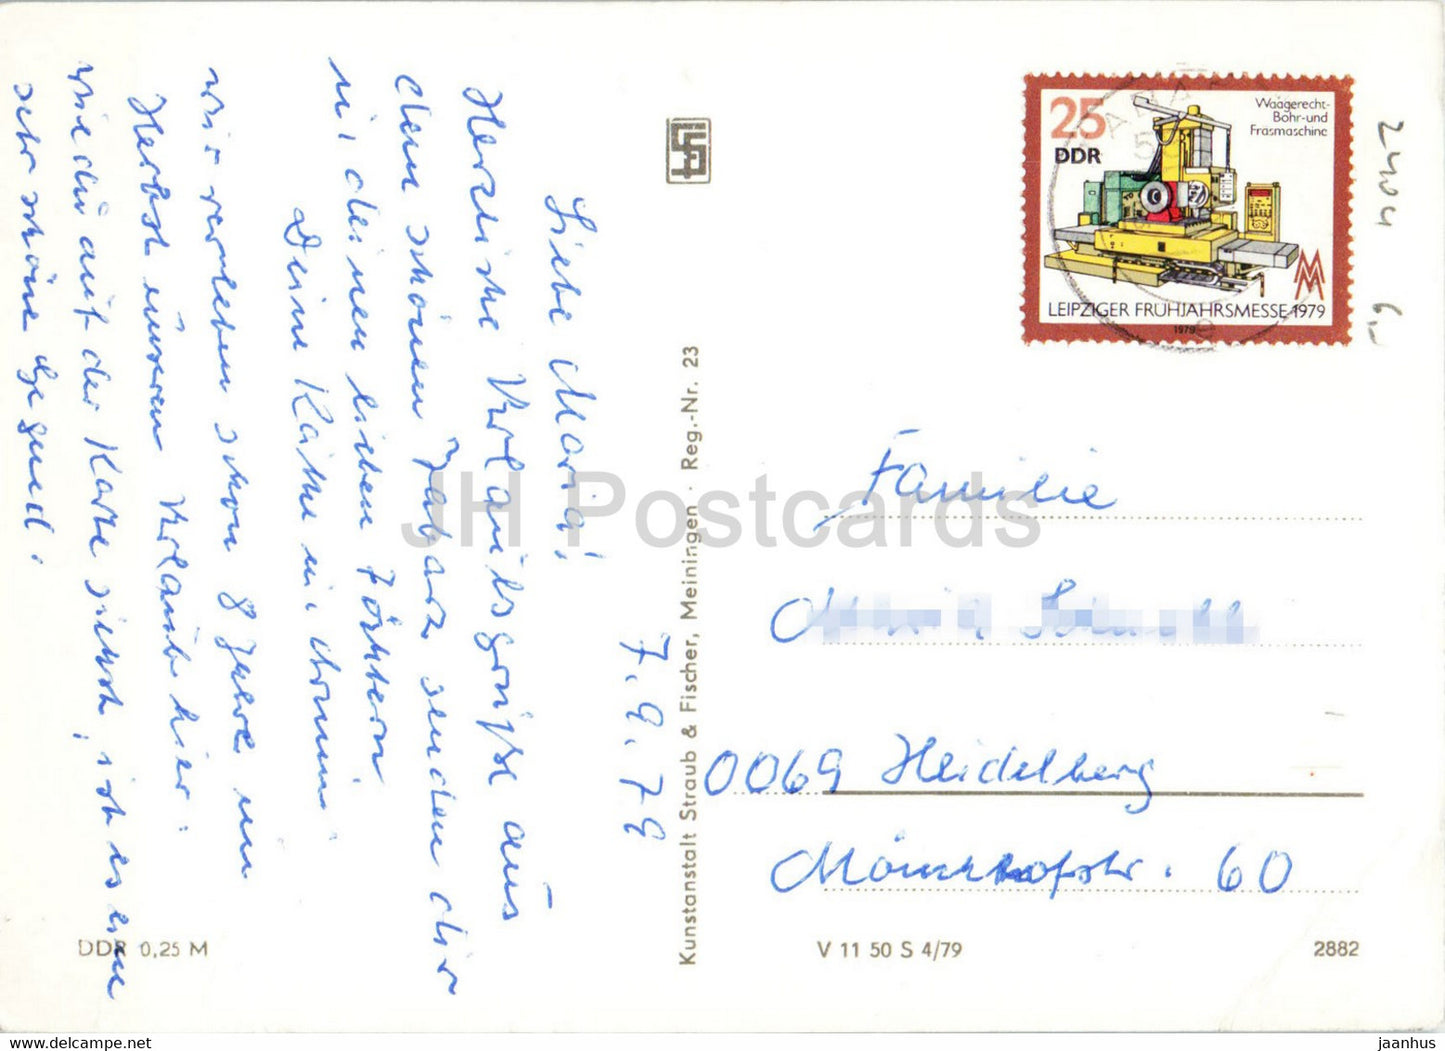 7.9.79
Liebe Maria!
Herzliche Urlaubsgrüße aus
dem schönen Tabarz senden dir
u. deinen lieben Töchtern
Deine Käthe u.
wir verleben schon 8 Jahre im
Herbst unseren Urlaub hier.
wie du auf der Karte siehst, ist es eine
sehr schöne Gegend.
DDR 0,25 M
Kunstanstalt Straub & Fischer, Meiningen · Reg.-Nr. 23
25
DDR
Waagerecht-
Bohr-und
Fräsmaschine
MM
LEIPZIGER FRÜHJAHRSMESSE 1979
1979
Familie
0069 Heidelberg
Mönchhofstr. 60
V 11 50 S 4/79
2882
2404
6,-
JH Postcards
jaanhus
https://www.ebay.com/str/jaanhus